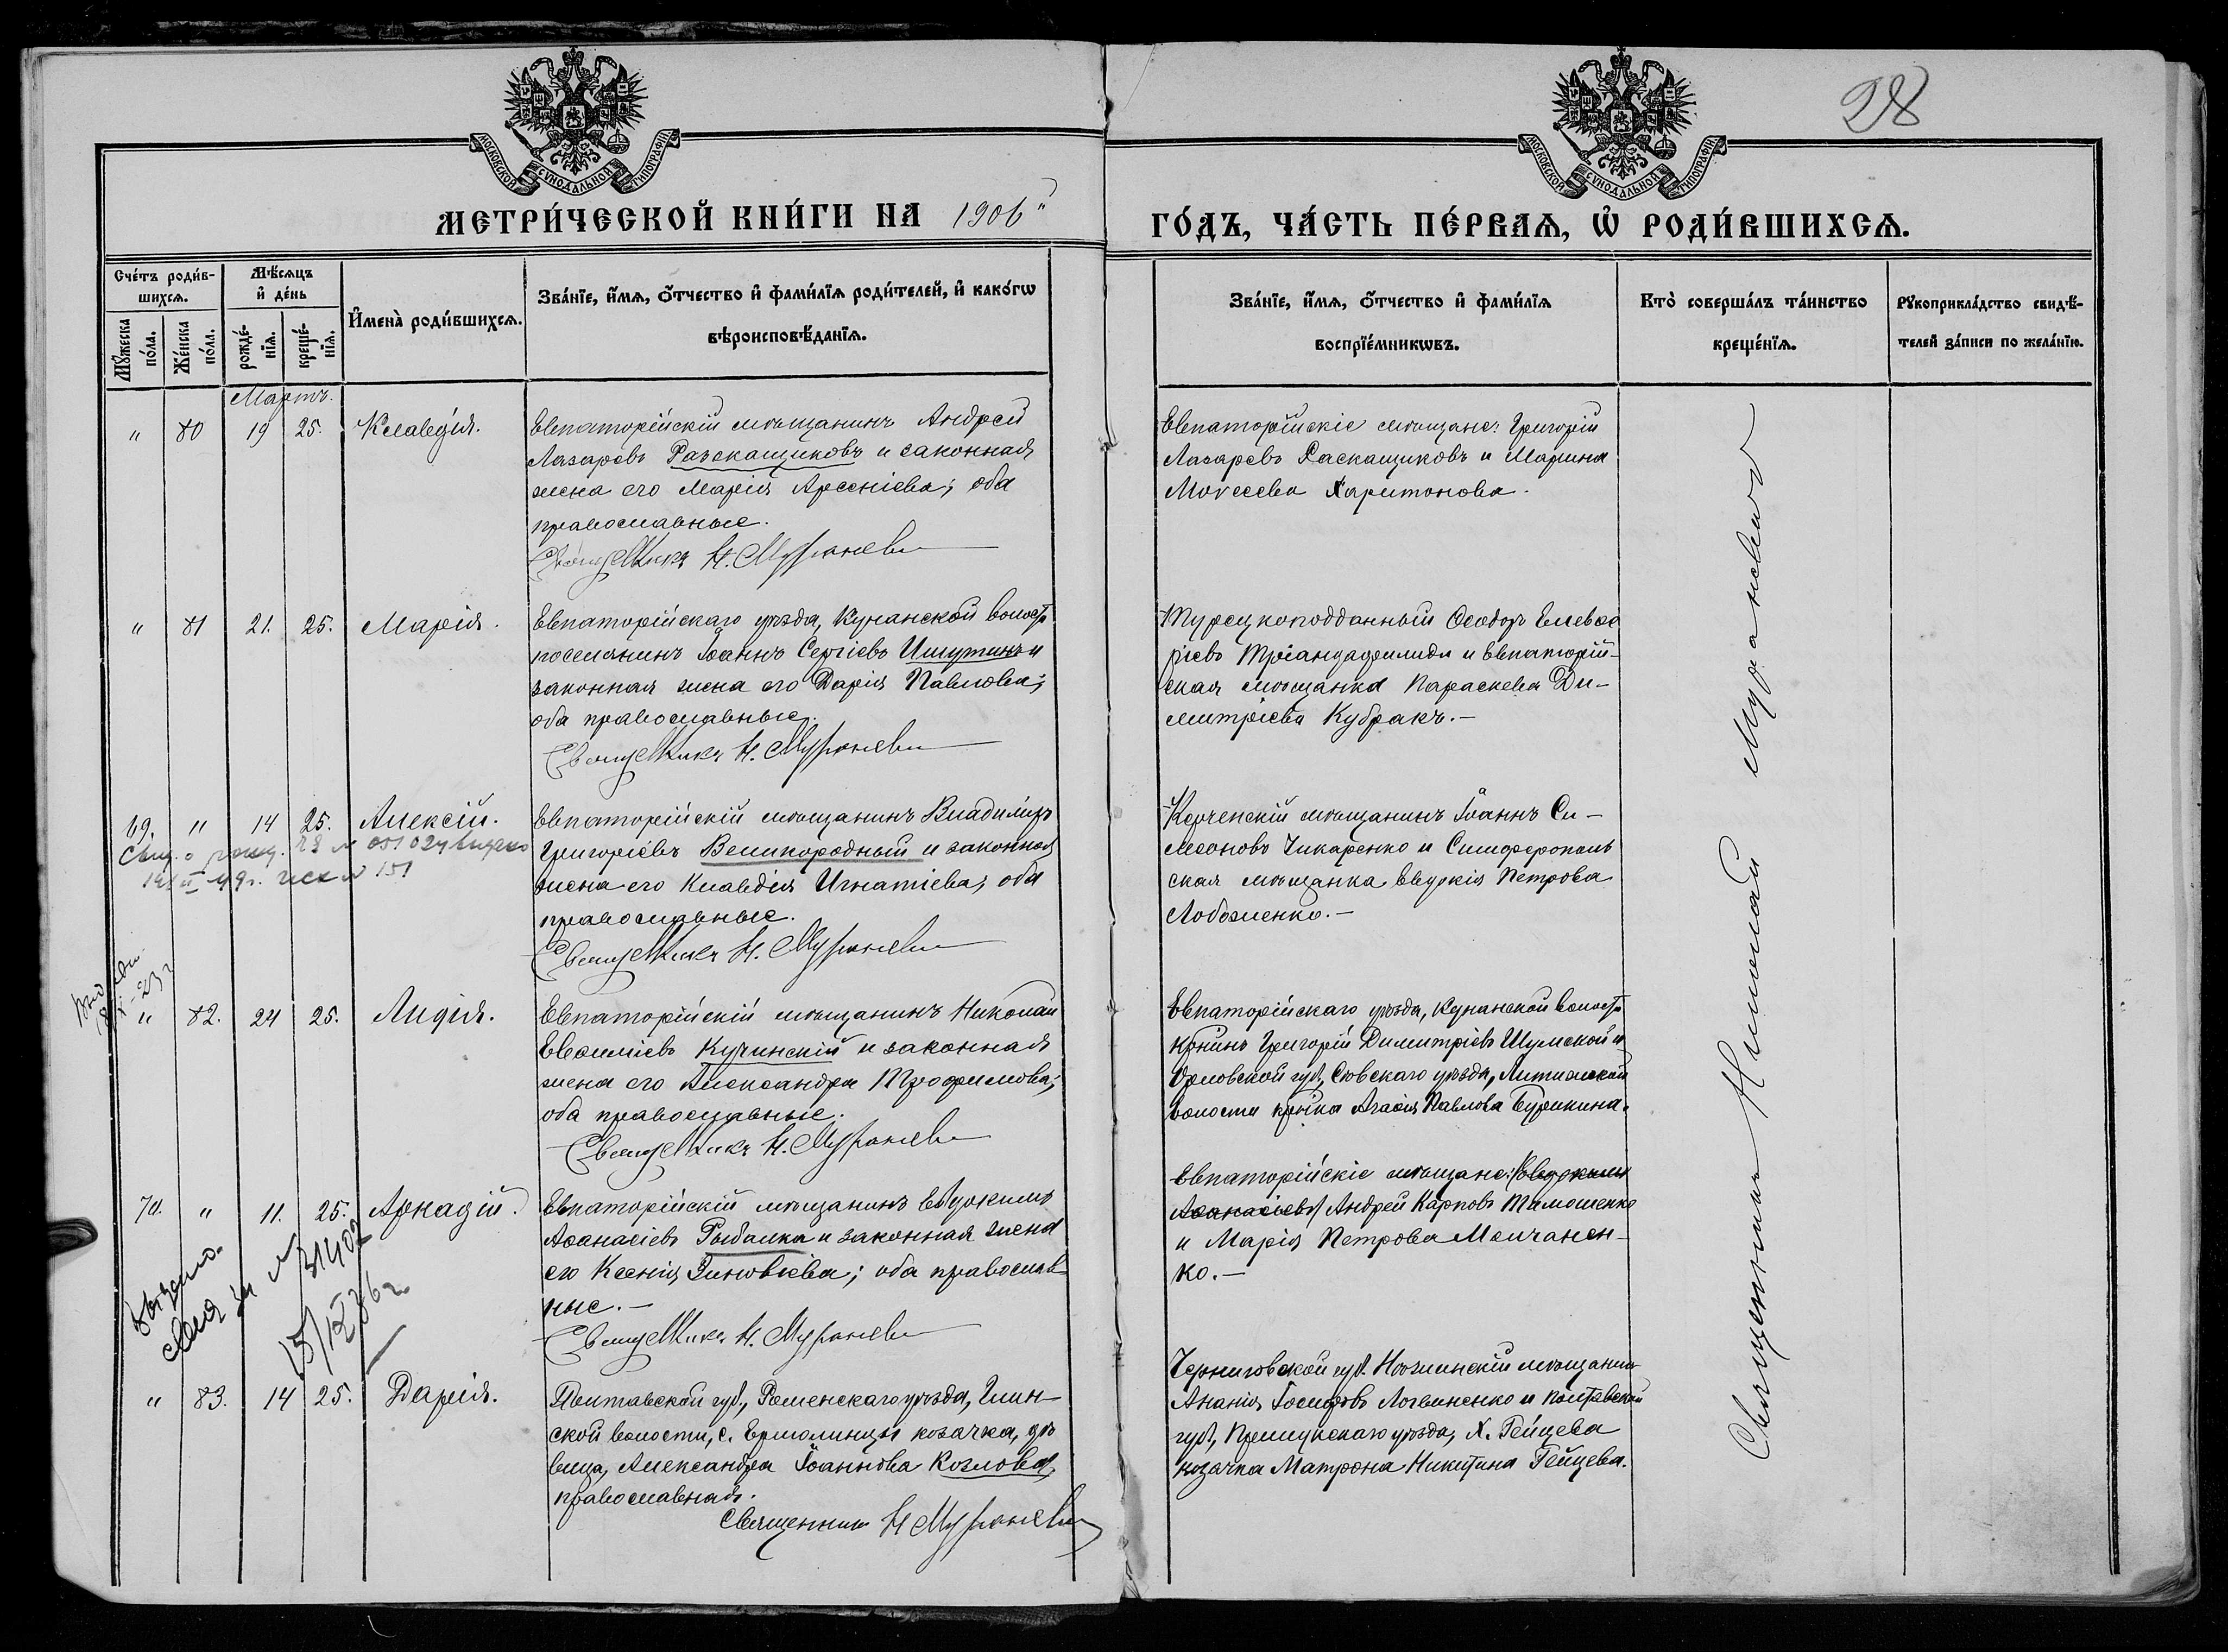 28
МОСКОВСКОЙ СУНОДАЛЬНОЙ ТИПОГРАФІИ
МОСКОВСКОЙ СУНОДАЛЬНОЙ ТИПОГРАФІИ
МЕТРИ́ЧЕСКОЙ КНИ́ГИ НА 1906"
ГО́ДЪ, ЧА́СТЬ ПЕ́РВАѦ, Ѽ РОДИ́ВШИХСѦ.
Сче́тъ роди́в-
шихсѧ.
Мꙋ́жеска
по́ла.
Же́нска
по́ла.
Мѣ́сѧцъ
и҆ де́нь
рожде́-
нїѧ.
креще́-
нїѧ.
И҆мена̀ роди́вшихсѧ.
Зва́нїе, и҆́мѧ, ѻ҆́тчество и҆ фами́лїѧ роди́телей, и҆ како́гѡ
вѣроисповѣ́данїѧ.
Зва́нїе, и҆́мѧ, ѻ҆́тчество и҆ фами́лїѧ
воспрїе́мникѡвъ.
Кто̀ соверша́лъ та́инство
креще́нїѧ.
Рꙋкоприкла́дство свидѣ́-
телей за́писи по жела́нїю.
Мартъ.
" 80 19 25. Клавдія.
Евпаторійскій мѣщанинъ Андрей
Лазаревъ Разскащиковъ и законная
жена его Марія Арсеніева; оба
православные.
Священникъ Н. Мураневич
Евпаторійскіе мѣщане: Григорій
Лазаревъ Раскащиковъ и Марина
Моѵсеева Харитонова.
" 81 21. 25. Марія.
Евпаторійскаго уѣзда, Кунанской волости
поселянинъ Іоаннъ Сергіевъ Ишутинъ и
законная жена его Дарія Павлова;
оба православные.
Священникъ Н. Мураневич
Турецкоподданный Ѳеодоръ Елевѳе
ріевъ Тріандафилиди и Евпаторій-
ская мѣщанка Параскева Ди-
митріева Кубракъ.-
69. " 14 25. Алексій.
Свид. о рожд. ЯЗ № 051024 выдано
Евпаторійскій мѣщанинъ Владиміръ
Григоріевъ Великородный и законная
жена его Клавдія Игнатіева, оба
православные.
Священникъ Н. Мураневич
Керченскій мѣщанинъ Іоаннъ Си-
меоновъ Чикаренко и Симферополь
ская мѣщанка Евдокія Петрова
Лобоженко.-
" 82. 24 25. Лидія.
Евпаторійскій мѣщанинъ Николай
Евѳиміевъ Кучинскій и законная
жена его Александра Трофимова;
оба православные.
Священникъ Н. Мураневич
Евпаторійскаго уѣзда, Кунанской волости
кр҃нинъ Григорій Димитріевъ Шумской и
Орловской губ., Сѣвскаго уѣзда,
волости кр҃нка Агаѳія Павлова Бурикина.
70. " 11. 25. Аркадій.
Выдано
31402
Евпаторійскій мѣщанинъ Евдокимъ
Аѳанасіевъ Рыбалка и законная жена
его Ксенія Зиновіева; оба православ
ные.-
Священникъ Н. Мураневич
Евпаторійскіе мѣщане: (Евдокимъ
Аѳанасіевъ) Андрей Карповъ Тимошенко
и Марія Петрова Молчанен-
ко.-
" 83. 14 25. Дарія.
Полтавской губ., Роменскаго уѣзда, Глин-
ской волости, с. Ермолинцы козачка, дѣ
вица, Александра Іоаннова Козлова,
православная.
Священникъ Н Мураневич
Черниговской губ. Нѣжинскій мѣщанинъ
Ананія Іосифовъ Логвиненко и Полтавской
губ., Прилукскаго уѣзда, х. Гейцева
козачка Матрона Никитина Гейцева.
Священникъ Николай Мураневич